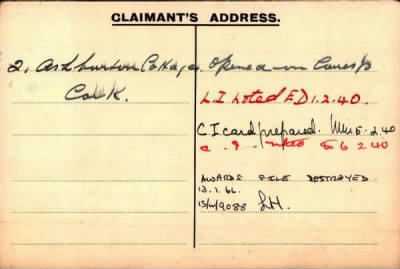 CLAIMANT'S ADDRESS.
2, Ashburton Cottages. Opened
Cork.
L.I. noted ED 1.2.40.
C I card prepared. 5.2.40
noted 6 2 40
AWARDS FILE DESTROYED
13.7.66.
13/4/9088 LH.